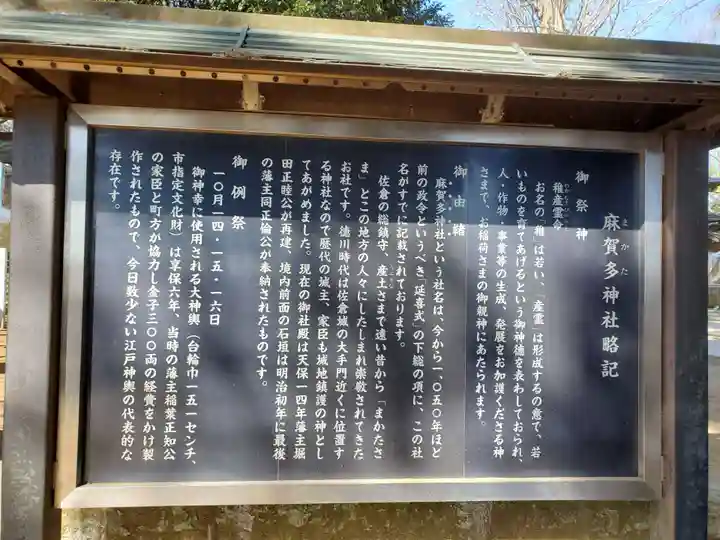 まかた
麻賀多神社略記
御祭神
わかむすびのみこと
稚産霊命
お名の「稚」は若い、「産霊」は形成するの意で、若
いものを育てあげるという御神徳を表わしておられ、
人・作物・事業等の生成、発展をお加護くださる神
さまで、お稲荷さまの御親神にあたられます。
御由緒
麻賀多神社という社名は、今から一、〇五〇年ほど
前の政令というべき「延喜式」の下総の項に、この社
名がすでに記載されております。
佐倉の総鎮守、産土さまで遠い昔から「まかたさ
ま」とこの地方の人々にしたしまれ崇敬されてきた
お社です。徳川時代は佐倉城の大手門近くに位置す
る神社なので歴代の城主、家臣も城地鎮護の神とし
てあがめました。現在の御社殿は天保一四年藩主堀
田正睦公が再建、境内前面の石垣は明治初年に最後
の藩主同正倫公が奉納されたものです。
御例祭
一〇月一四・一五・一六日
御神幸に使用される大神輿(台輪巾一五一センチ、
市指定文化財)は享保六年、当時の藩主稲葉正知公
の家臣と町方が協力し金子三〇〇両の経費をかけ製
作されたもので、今日数少ない江戸神輿の代表的な
存在です。